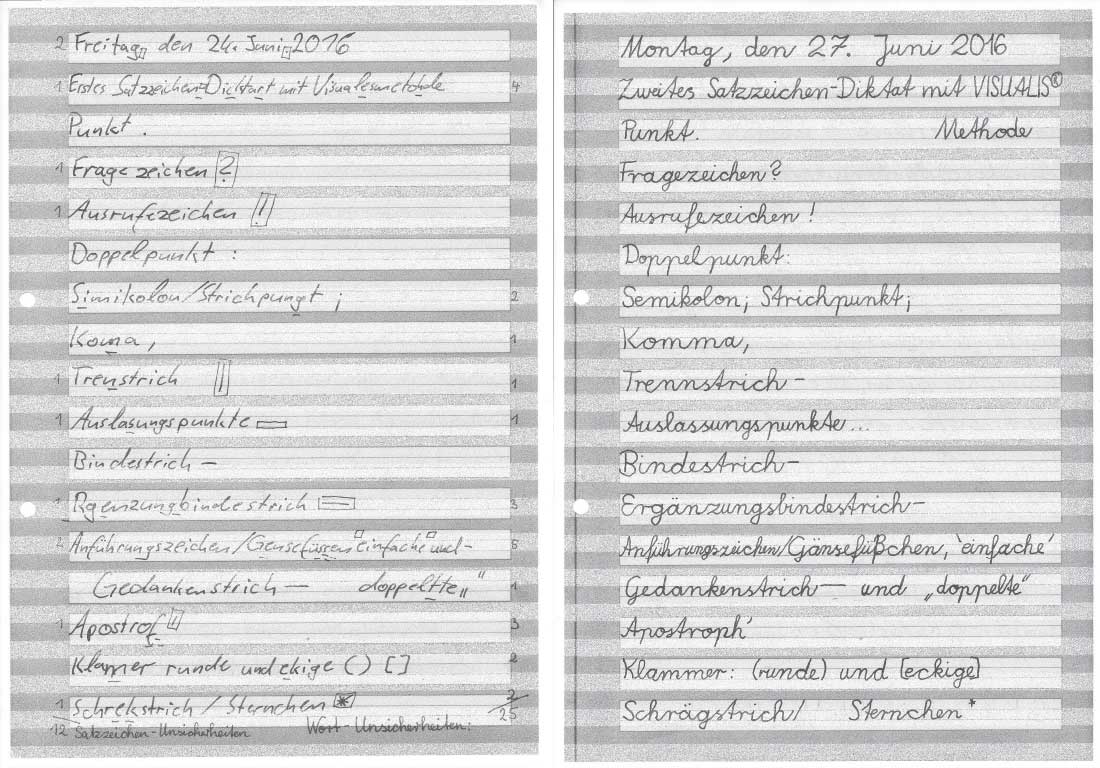 2 Freitag, den 24. Juni 2016
1 Erstes Satzzeichen-Dicktart mit Visualesmetohde 4
Punkt .
1 Fragezeichen ?
1 Ausrufezeichen !
Doppelpunkt :
Simikolon/Strichpungt ; 2
Koma , 1
1 Trenstrich | 1
1 Auslasungspunkte 1
Bindestrich –
1 Rgenzungbindestrich 3
Anführungszeichen/Gensefüsren einfache und-
Gedankenstrich — doppeltte „“ 1
1 Apostrof ' 3
Klamer runde und ekige ( ) [ ] 2
1 Schrekstrich / Sternchen *
12 Satzzeichen-Unsicherheiten Wort-Unsicherheiten: 25
Montag, den 27. Juni 2016
Zweites Satzzeichen-Diktat mit VISUALIS®
Punkt. Methode
Fragezeichen?
Ausrufezeichen !
Doppelpunkt:
Semikolon; Strichpunkt;
Komma,
Trennstrich -
Auslassungspunkte...
Bindestrich-
Ergänzungsbindestrich-
Anführungszeichen/Gänsefüßchen, 'einfache'
Gedankenstrich — und „doppelte“
Apostroph'
Klammer: (runde) und [eckige]
Schrägstrich/ Sternchen*